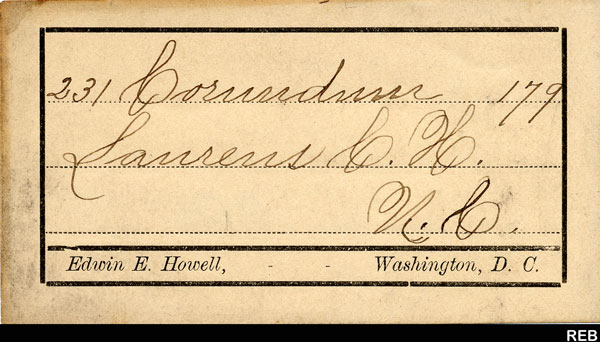 231 Corundum 179
Laurens C. H.
N. C.
Edwin E. Howell, - - Washington, D. C.
REB